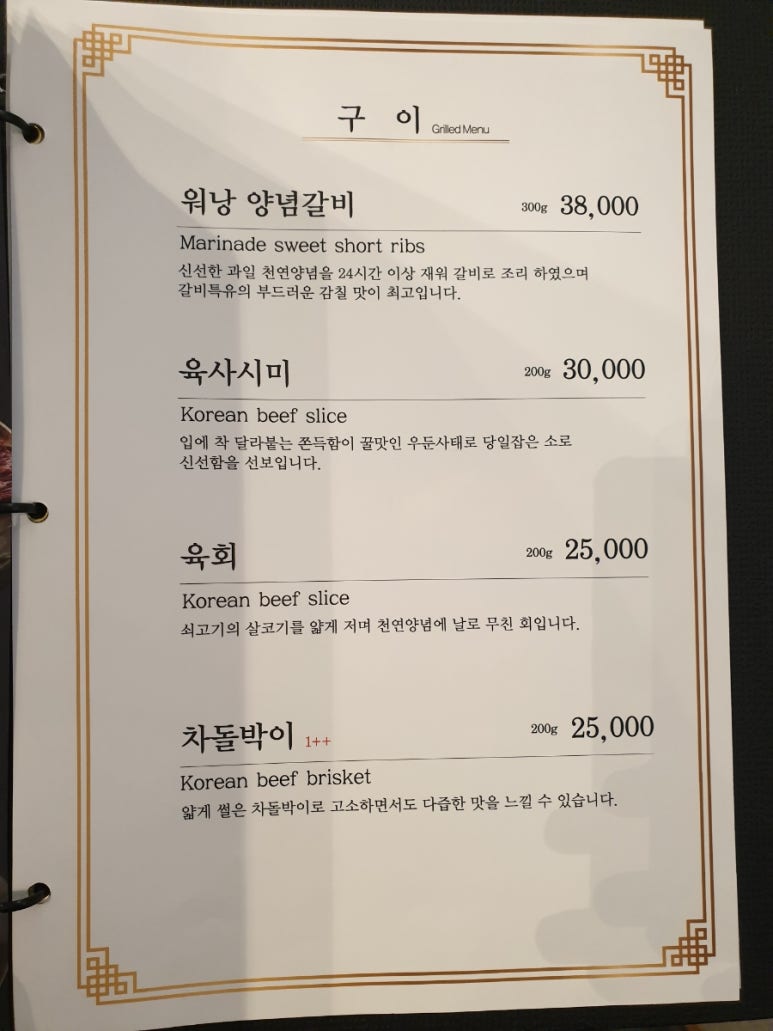 구 이 Grilled Menu
워낭 양념갈비 300g 38,000
Marinade sweet short ribs
신선한 과일 천연양념을 24시간 이상 재워 갈비로 조리 하였으며
갈비특유의 부드러운 감칠 맛이 최고입니다.
육사시미 200g 30,000
Korean beef slice
입에 착 달라붙는 쫀득함이 꿀맛인 우둔사태로 당일잡은 소로
신선함을 선보입니다.
육회 200g 25,000
Korean beef slice
쇠고기의 살코기를 얇게 저며 천연양념에 날로 무친 회입니다.
차돌박이 1++ 200g 25,000
Korean beef brisket
얇게 썰은 차돌박이로 고소하면서도 다즙한 맛을 느낄 수 있습니다.